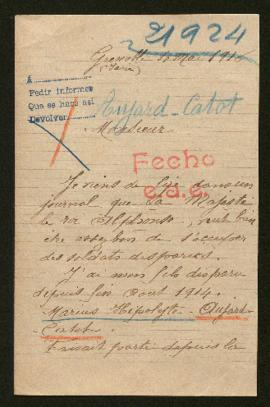 21924
Grenoble 15 Mai 191
(Isère)
A
Pedir informes
Que se haga así
Devolver
Aujard-Catot
Monsieur
Fecho
Je viens de lire dans un
journal que Sa Majesté
le roi Alphonse, veut bien
être assez bon de s'occuper
des soldats disparus.
J'ai mon fils disparu
depuis fin Août 1914.
Marius Hipolyte Aujard-
Catot.
faisait partie depuis le